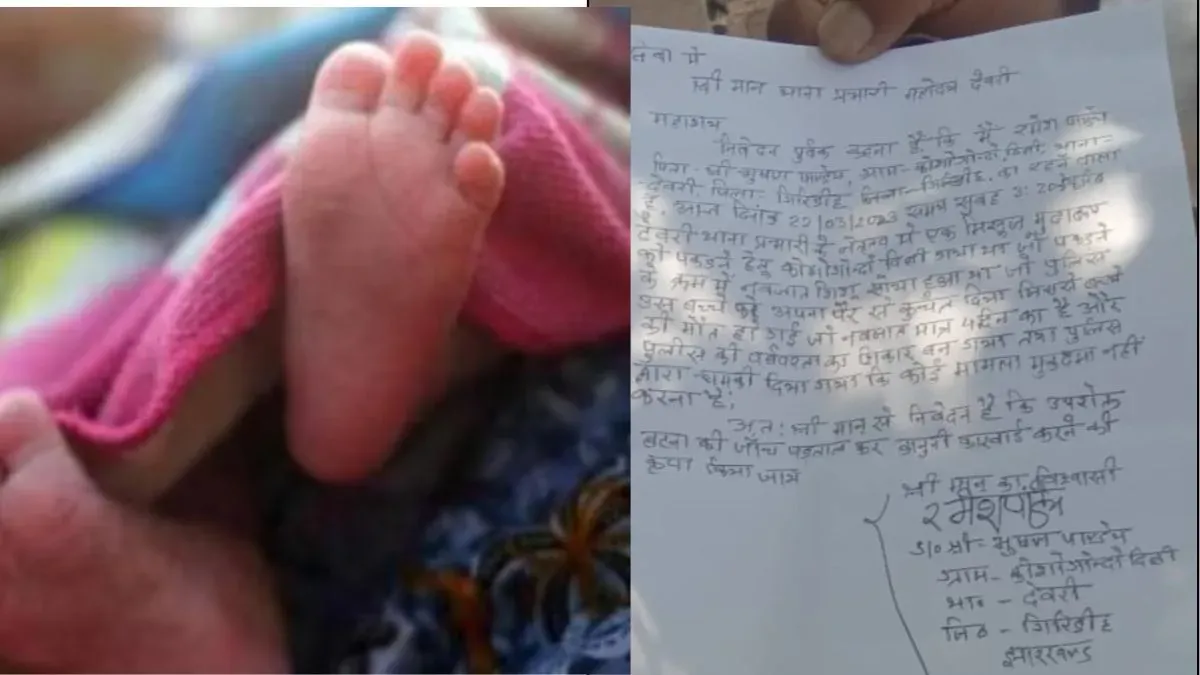 सेवा में
श्री मान थाना प्रभारी महोदय देवरी
महाशय
निवेदन पुर्वक कहना है कि मैं रमेश पाण्डेय
पिता - श्री भुषण पाण्डेय, ग्राम - कोशोगोन्दो दिघी, थाना -
देवरी, जिला - गिरिडीह का रहने वाला
है, आज दिनांक 22/03/2023 समय सुबह 3:20
देवरी थाना प्रभारी के नेतृत्व में एक
को पकड़ने हेतु कोशोगोन्दो दिघी गया था जो पकड़ने
के क्रम में नवजात शिशु सोया हुआ था जो पुलिस
उस बच्चे को अपना पैर से कुचल दिया जिससे बच्चे
की मौत हो गई जो नवजात मात्र 4 दिन का है और
पुलीस की का शिकार बन गया तथा पुलिस
द्वारा धमकी दिया गया कि कोई मामला मुकदमा नहीं
करना है;
अतः श्री मान से निवेदन है कि उपरोक्त
घटना की जाँच पड़ताल कर कानुनी कारवाई करने की
कृपा किया जाय
श्री मान का विश्वासी
रमेश पाण्डेय
S/o श्री - भुषण पाण्डेय
ग्राम - कोशोगोन्दो दिघी
था॰ - देवरी
जि॰ - गिरिडीह
झारखण्ड